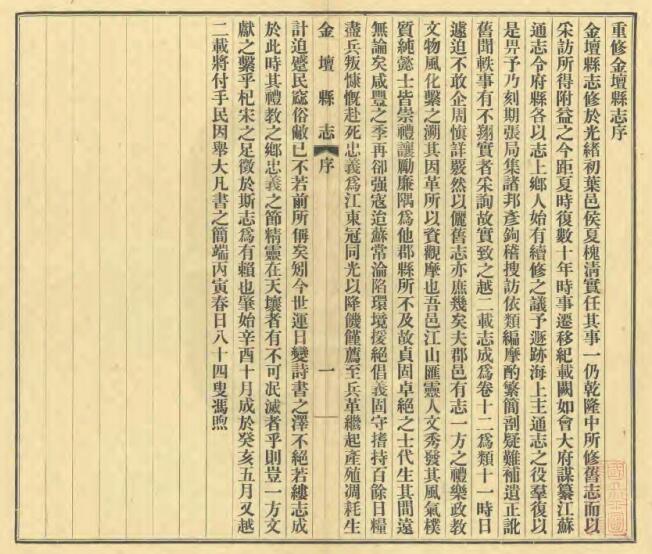 重修金壇縣志序
金壇縣志修於光緒初葉邑侯夏槐清實任其事一仍乾隆中所修舊志而以
采訪所得附益之今距夏時復數十年時事遷移紀載闕如會大府謀纂江蘇
通志令府縣各以志上鄉人始有續修之議予遯跡海上主通志之役羣復以
是畀予乃刻期張局集諸邦彥鉤稽搜訪依類編摩酌繁簡剖疑難補遺正訛
舊聞軼事有不翔實者采詢故實致之越二載志成爲卷十二爲類十一時日
遽迫不敢企周慎詳覈然以儷舊志亦庶幾矣夫郡邑有志一方之禮樂政教
文物風化繫之溯其因革所以資觀摩也吾邑江山匯靈人文秀發其風氣樸
質純懿士皆崇禮讓勵廉隅爲他郡縣所不及故貞固卓絕之士代生其間遠
無論矣咸豐之季再卻强寇迨蘇常淪陷環境援絕倡義固守揩持百餘日糧
盡兵叛慷慨赴死忠義爲江東冠同光以降饑饉薦至兵革繼起產殖凋耗生
金壇縣志 序 一
計迫蹙民窳俗敝已不若前所偁矣矧今世運日變詩書之澤不絕若縷志成
於此時其禮教之鄉忠義之節精靈在天壤者有不可泯滅者乎則豈一方文
獻之繫乎杞宋之足徵於斯志爲有賴也肇始辛酉十月成於癸亥五月又越
二載將付手民因舉大凡書之簡端丙寅春日八十四叟馮煦